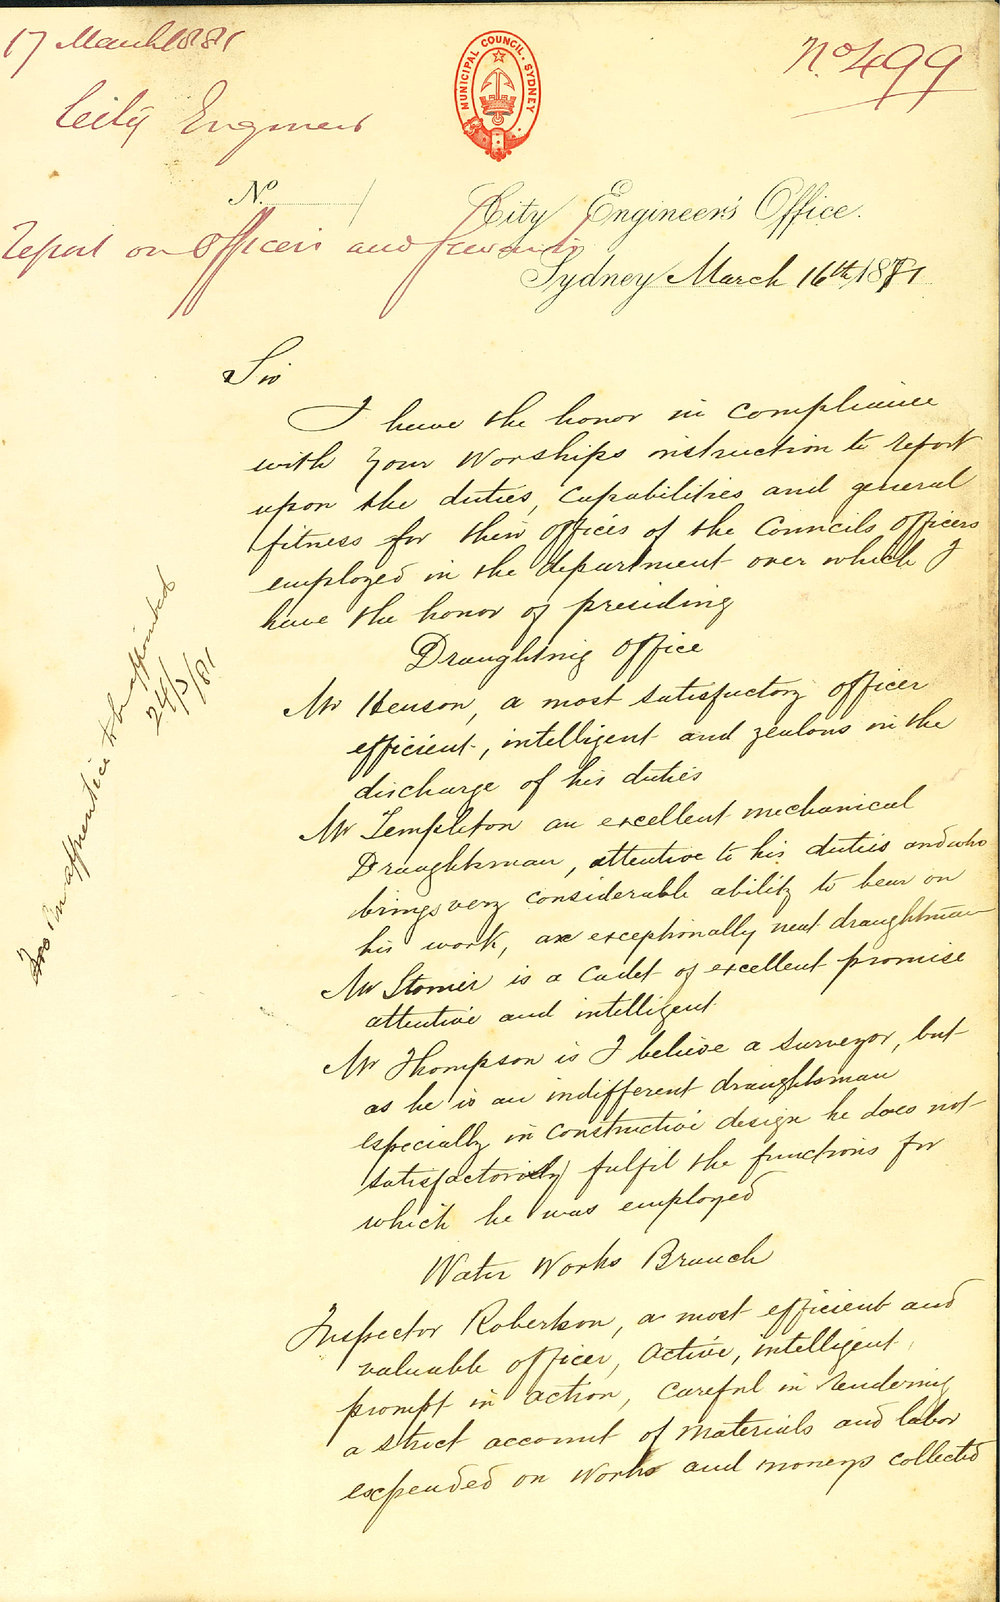 17 March 1881
No. 499
MUNICIPAL COUNCIL. SYDNEY
City Engineer
No.
City Engineer's Office.
Report on Officers and Servants
Sydney March 16th 1881
Sir
I have the honor in compliance
with Your Worships instruction to report
upon the duties, capabilities and general
fitness for their offices of the Councils Officers
employed in the department over which I
have the honor of presiding
Draughting Office
Mr Henson, a most satisfactory officer
efficient, intelligent and zealous in the
discharge of his duties
Mr Templeton an excellent mechanical
Draughtsman, attentive to his duties and who
brings very considerable ability to bear on
his work, an exceptionally neat draughtman
Mr Stomer is a Cadet of excellent promise
attentive and intelligent
Mr Thompson is I believe a surveyor, but
as he is an indifferent draughtsman
especially in constructive design he does not
satisfactorily fulfil the functions for
which he was employed
Water Works Branch
Inspector Robertson, a most efficient and
valuable officer, Active, intelligent,
prompt in action, careful in rendering
a strict account of materials and labor
expended on works and moneys collected
apprentice to be appointed
24/3/81